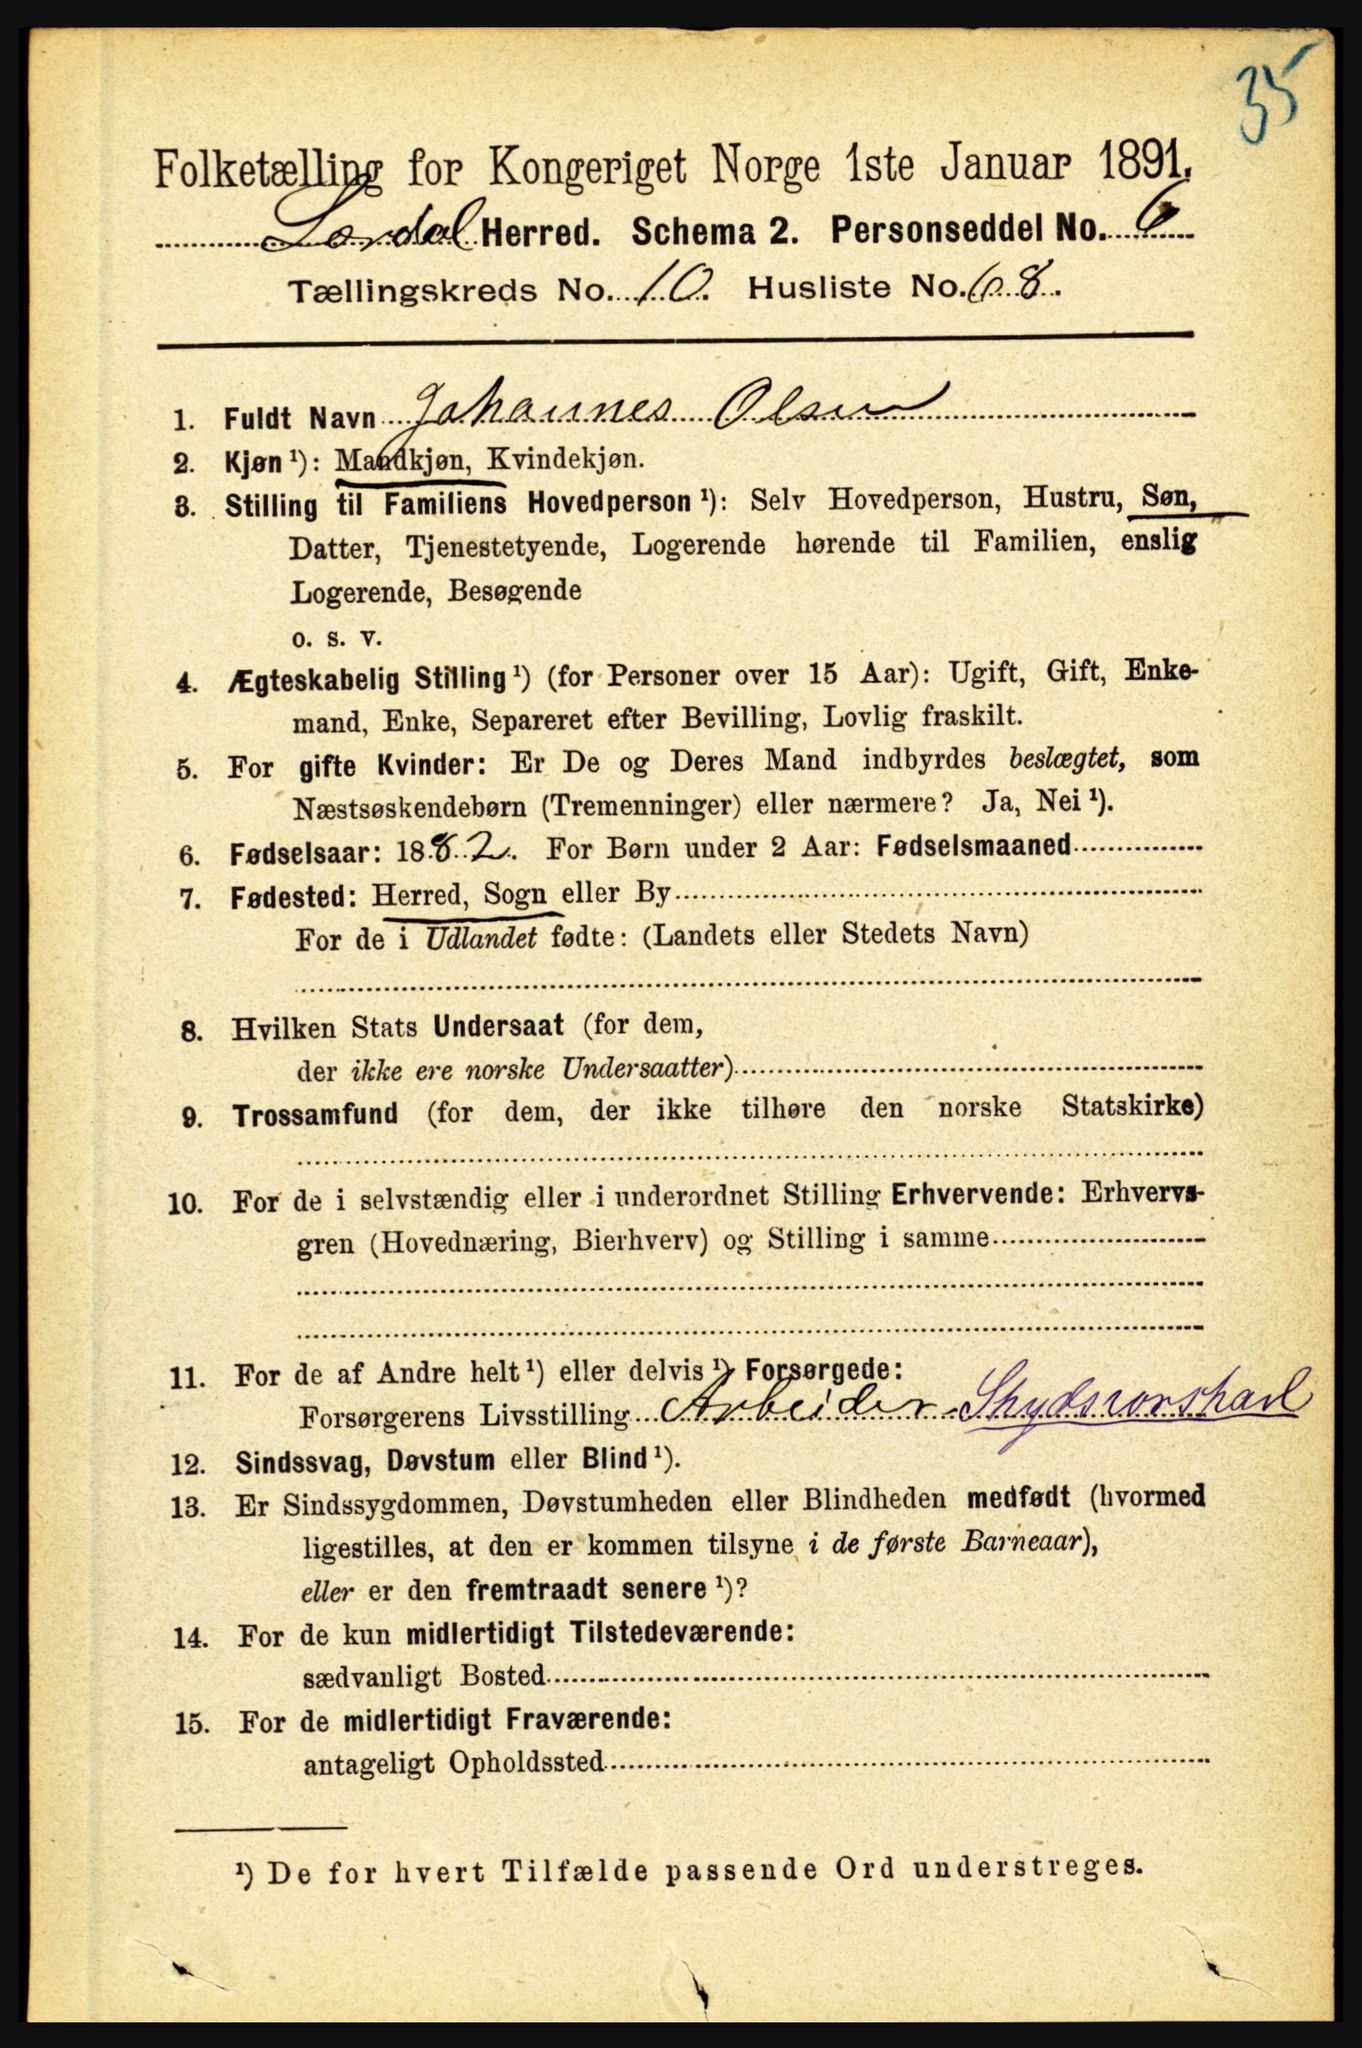 35
Folketælling for Kongeriget Norge 1ste Januar 1891.
Lærdal Herred. Schema 2. Personseddel No. 6
Tællingskreds No. 10. Husliste No. 68.
1. Fuldt Navn Johannes Olsen
2. Kjøn ¹): Mandkjøn, Kvindekjøn.
3. Stilling til Familiens Hovedperson ¹): Selv Hovedperson, Hustru, Søn,
Datter, Tjenestetyende, Logerende hørende til Familien, enslig
Logerende, Besøgende
o. s. v.
4. Ægteskabelig Stilling ¹) (for Personer over 15 Aar): Ugift, Gift, Enke-
mand, Enke, Separeret efter Bevilling, Lovlig fraskilt.
5. For gifte Kvinder: Er De og Deres Mand indbyrdes beslægtet, som
Næstsøskendebørn (Tremenninger) eller nærmere? Ja, Nei ¹).
6. Fødselsaar: 1882. For Børn under 2 Aar: Fødselsmaaned
7. Fødested: Herred, Sogn eller By
For de i Udlandet fødte: (Landets eller Stedets Navn)
8. Hvilken Stats Undersaat (for dem,
der ikke ere norske Undersaatter)
9. Trossamfund (for dem, der ikke tilhøre den norske Statskirke)
10. For de i selvstændig eller i underordnet Stilling Erhvervende: Erhvervs-
gren (Hovednæring, Bierhverv) og Stilling i samme
11. For de af Andre helt ¹) eller delvis ¹) Forsørgede:
Forsørgerens Livsstilling Arbeider Skydsrorskarl
12. Sindssvag, Døvstum eller Blind ¹).
13. Er Sindssygdommen, Døvstumheden eller Blindheden medfødt (hvormed
ligestilles, at den er kommen tilsyne i de første Barneaar),
eller er den fremtraadt senere ¹)?
14. For de kun midlertidigt Tilstedeværende:
sædvanligt Bosted
15. For de midlertidigt Fraværende:
antageligt Opholdssted
¹) De for hvert Tilfælde passende Ord understreges.